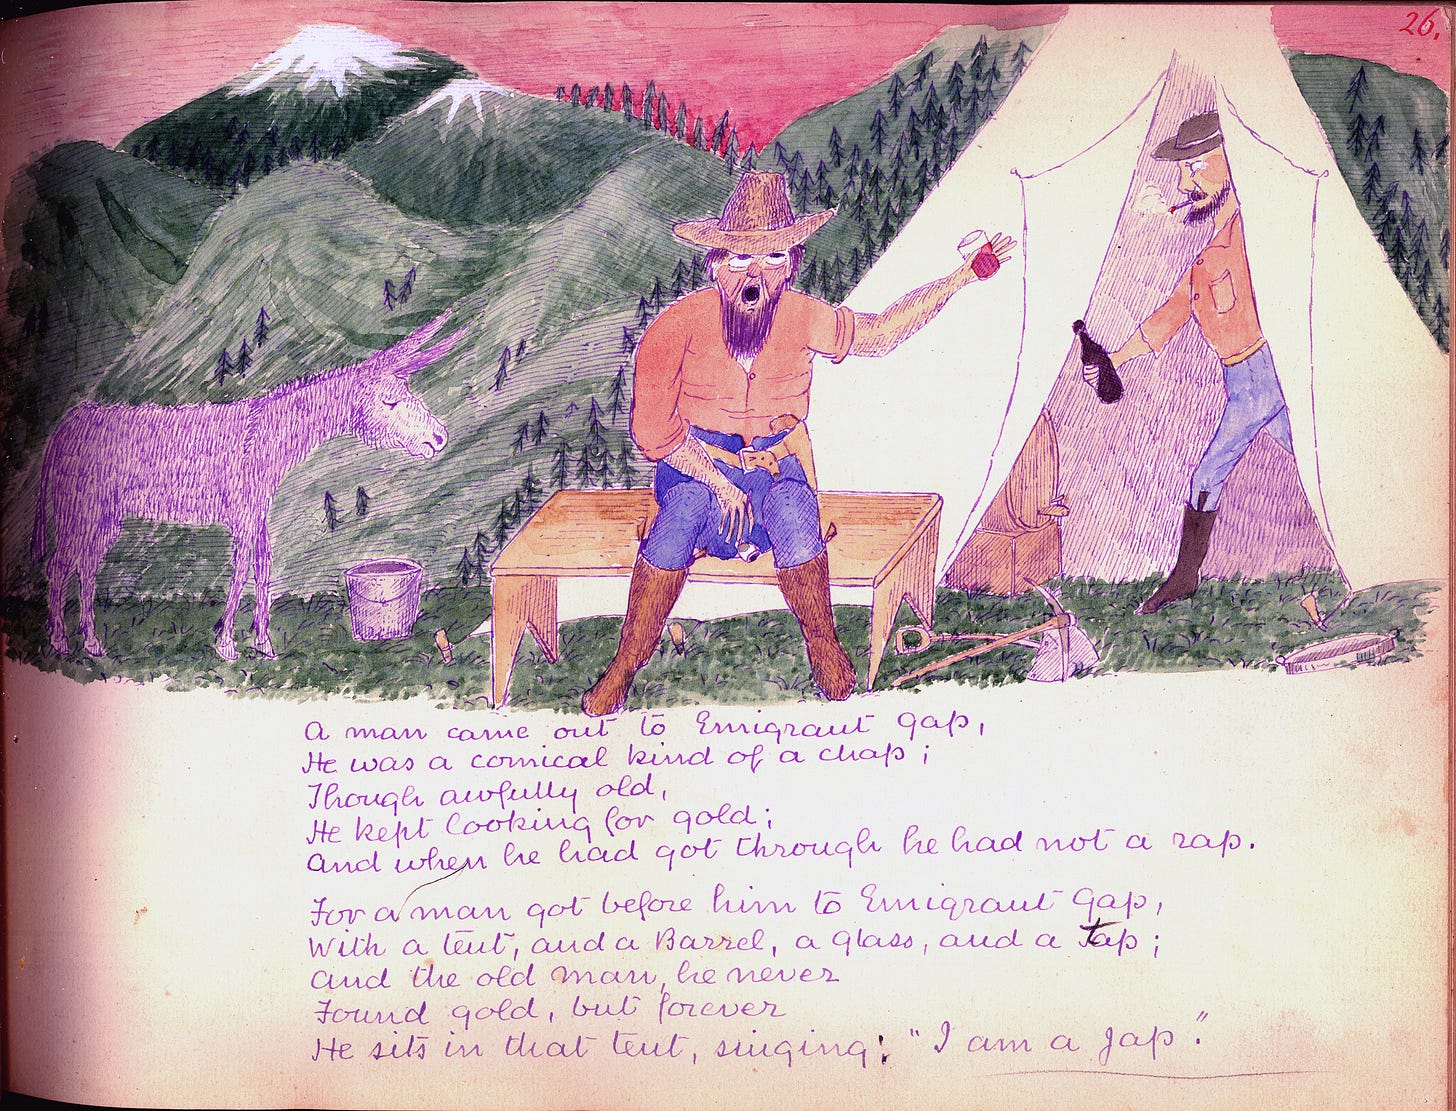 26.
A man came out to Emigrant Gap,
He was a comical kind of a chap;
Though awfully old,
He kept looking for gold;
And when he had got through he had not a rap.
For a man got before him to Emigrant Gap,
With a tent, and a Barrel, a glass, and a Tap;
And the old man, he never
Found gold, but forever
He sits in that tent, singing: "I am a Jap."